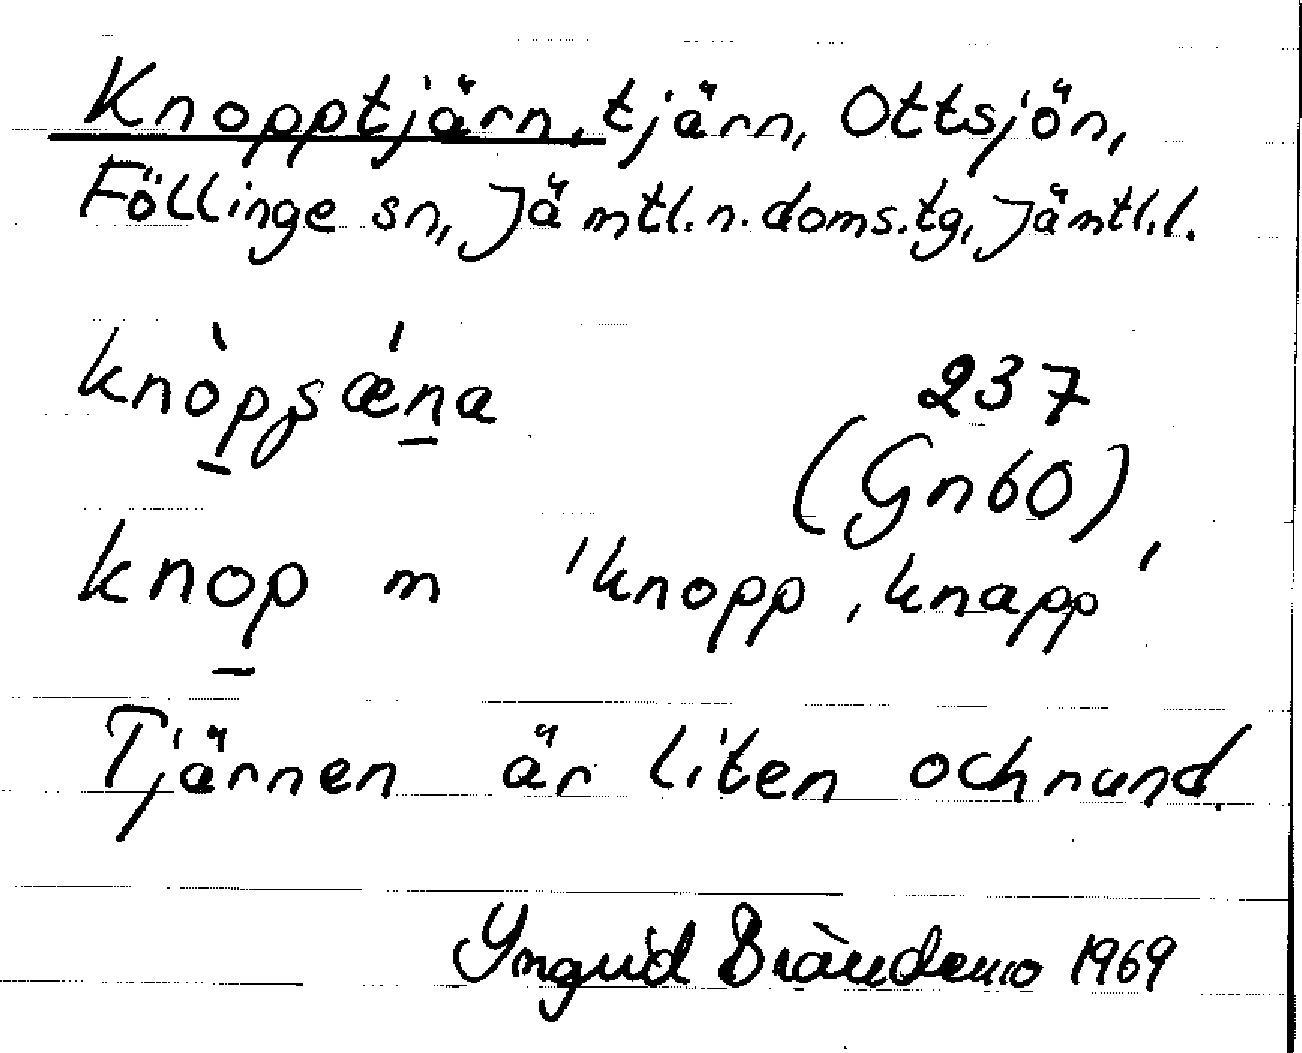 Knopptjärn, tjärn, Ottsjön,
Föllinge sn, Jämtl.n.doms.tg, Jämtl.l.
237
(Gn60)
knop m 'knopp, knapp'
Tjärnen är liten och rund.
Yngvid Brändemo 1969